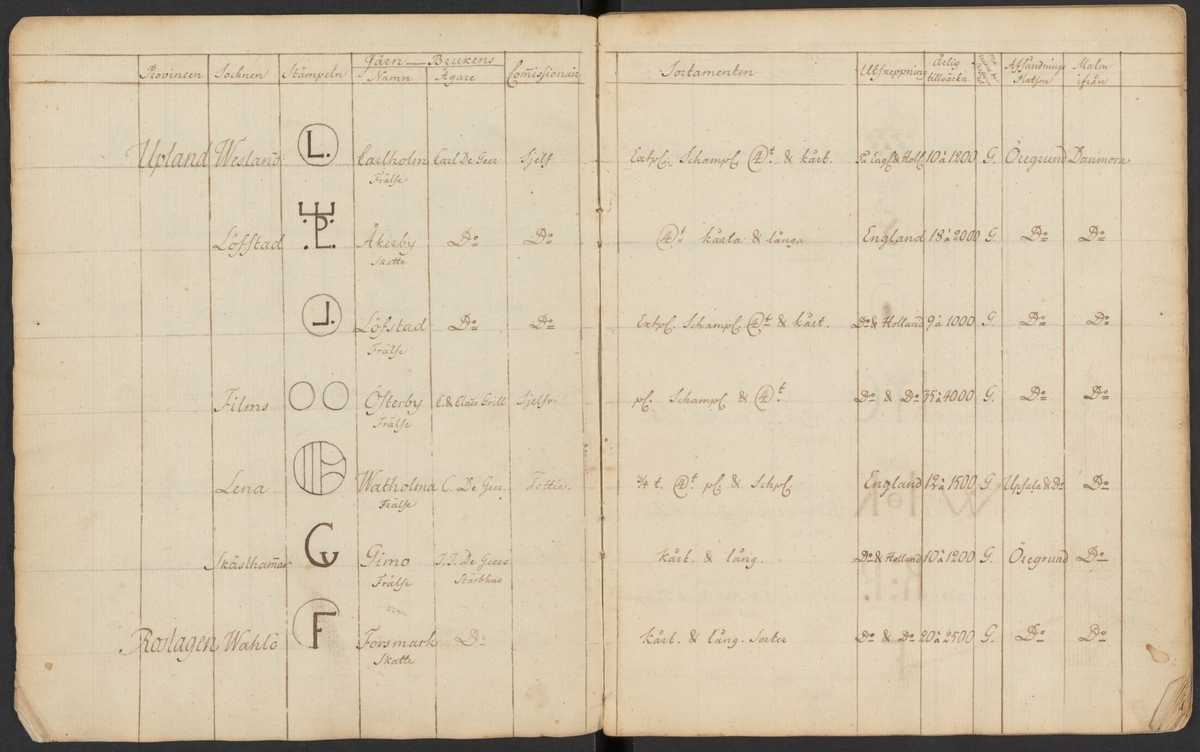 Järn Brukens
Provincen Socknen Stämpeln Namn Ägare Comissionair Sortamenten Utskeppning Årlig tillwärkn. Afsändnings Platsen Malm ifrån
Upland Wesland L. Carlholm Carl De Geer Sjelf Extpl. Schampl. 4t. & kårt. På Engl. & Holl. 10 à 1200 G. Öregrund Danmora
Frälse
Löfstad .PL. Åkerby Do Do 4t. kårta & långa England 18 à 2000 G. Do Do
Skatte
L. Löfstad Do Do Extpl. Schampl. 4t & kårt. Do & Holland 9 à 1000 G. Do Do
Frälse
Films Österby C. & Claes Grill Sjelfve pl. Schampl & 4t. Do & Do 35 à 4000 G. Do Do
Frälse
Lena Watholma C. De Geer. Tottie. 3/4 t. 4t. pl. & Schpl. England 12 à 1500 G Upsala & Do Do
Frälse
Skäfthamar G Gimo J. J. De Geers kårt. & lång. Do & Holland 10 à 1200 G. Öregrund Do
Frälse Stärbhus
Roslagen Wahlö F Forsmark Do kårt. & lång. Sorter Do & Do 20 à 2500 G. Do Do
Skatte